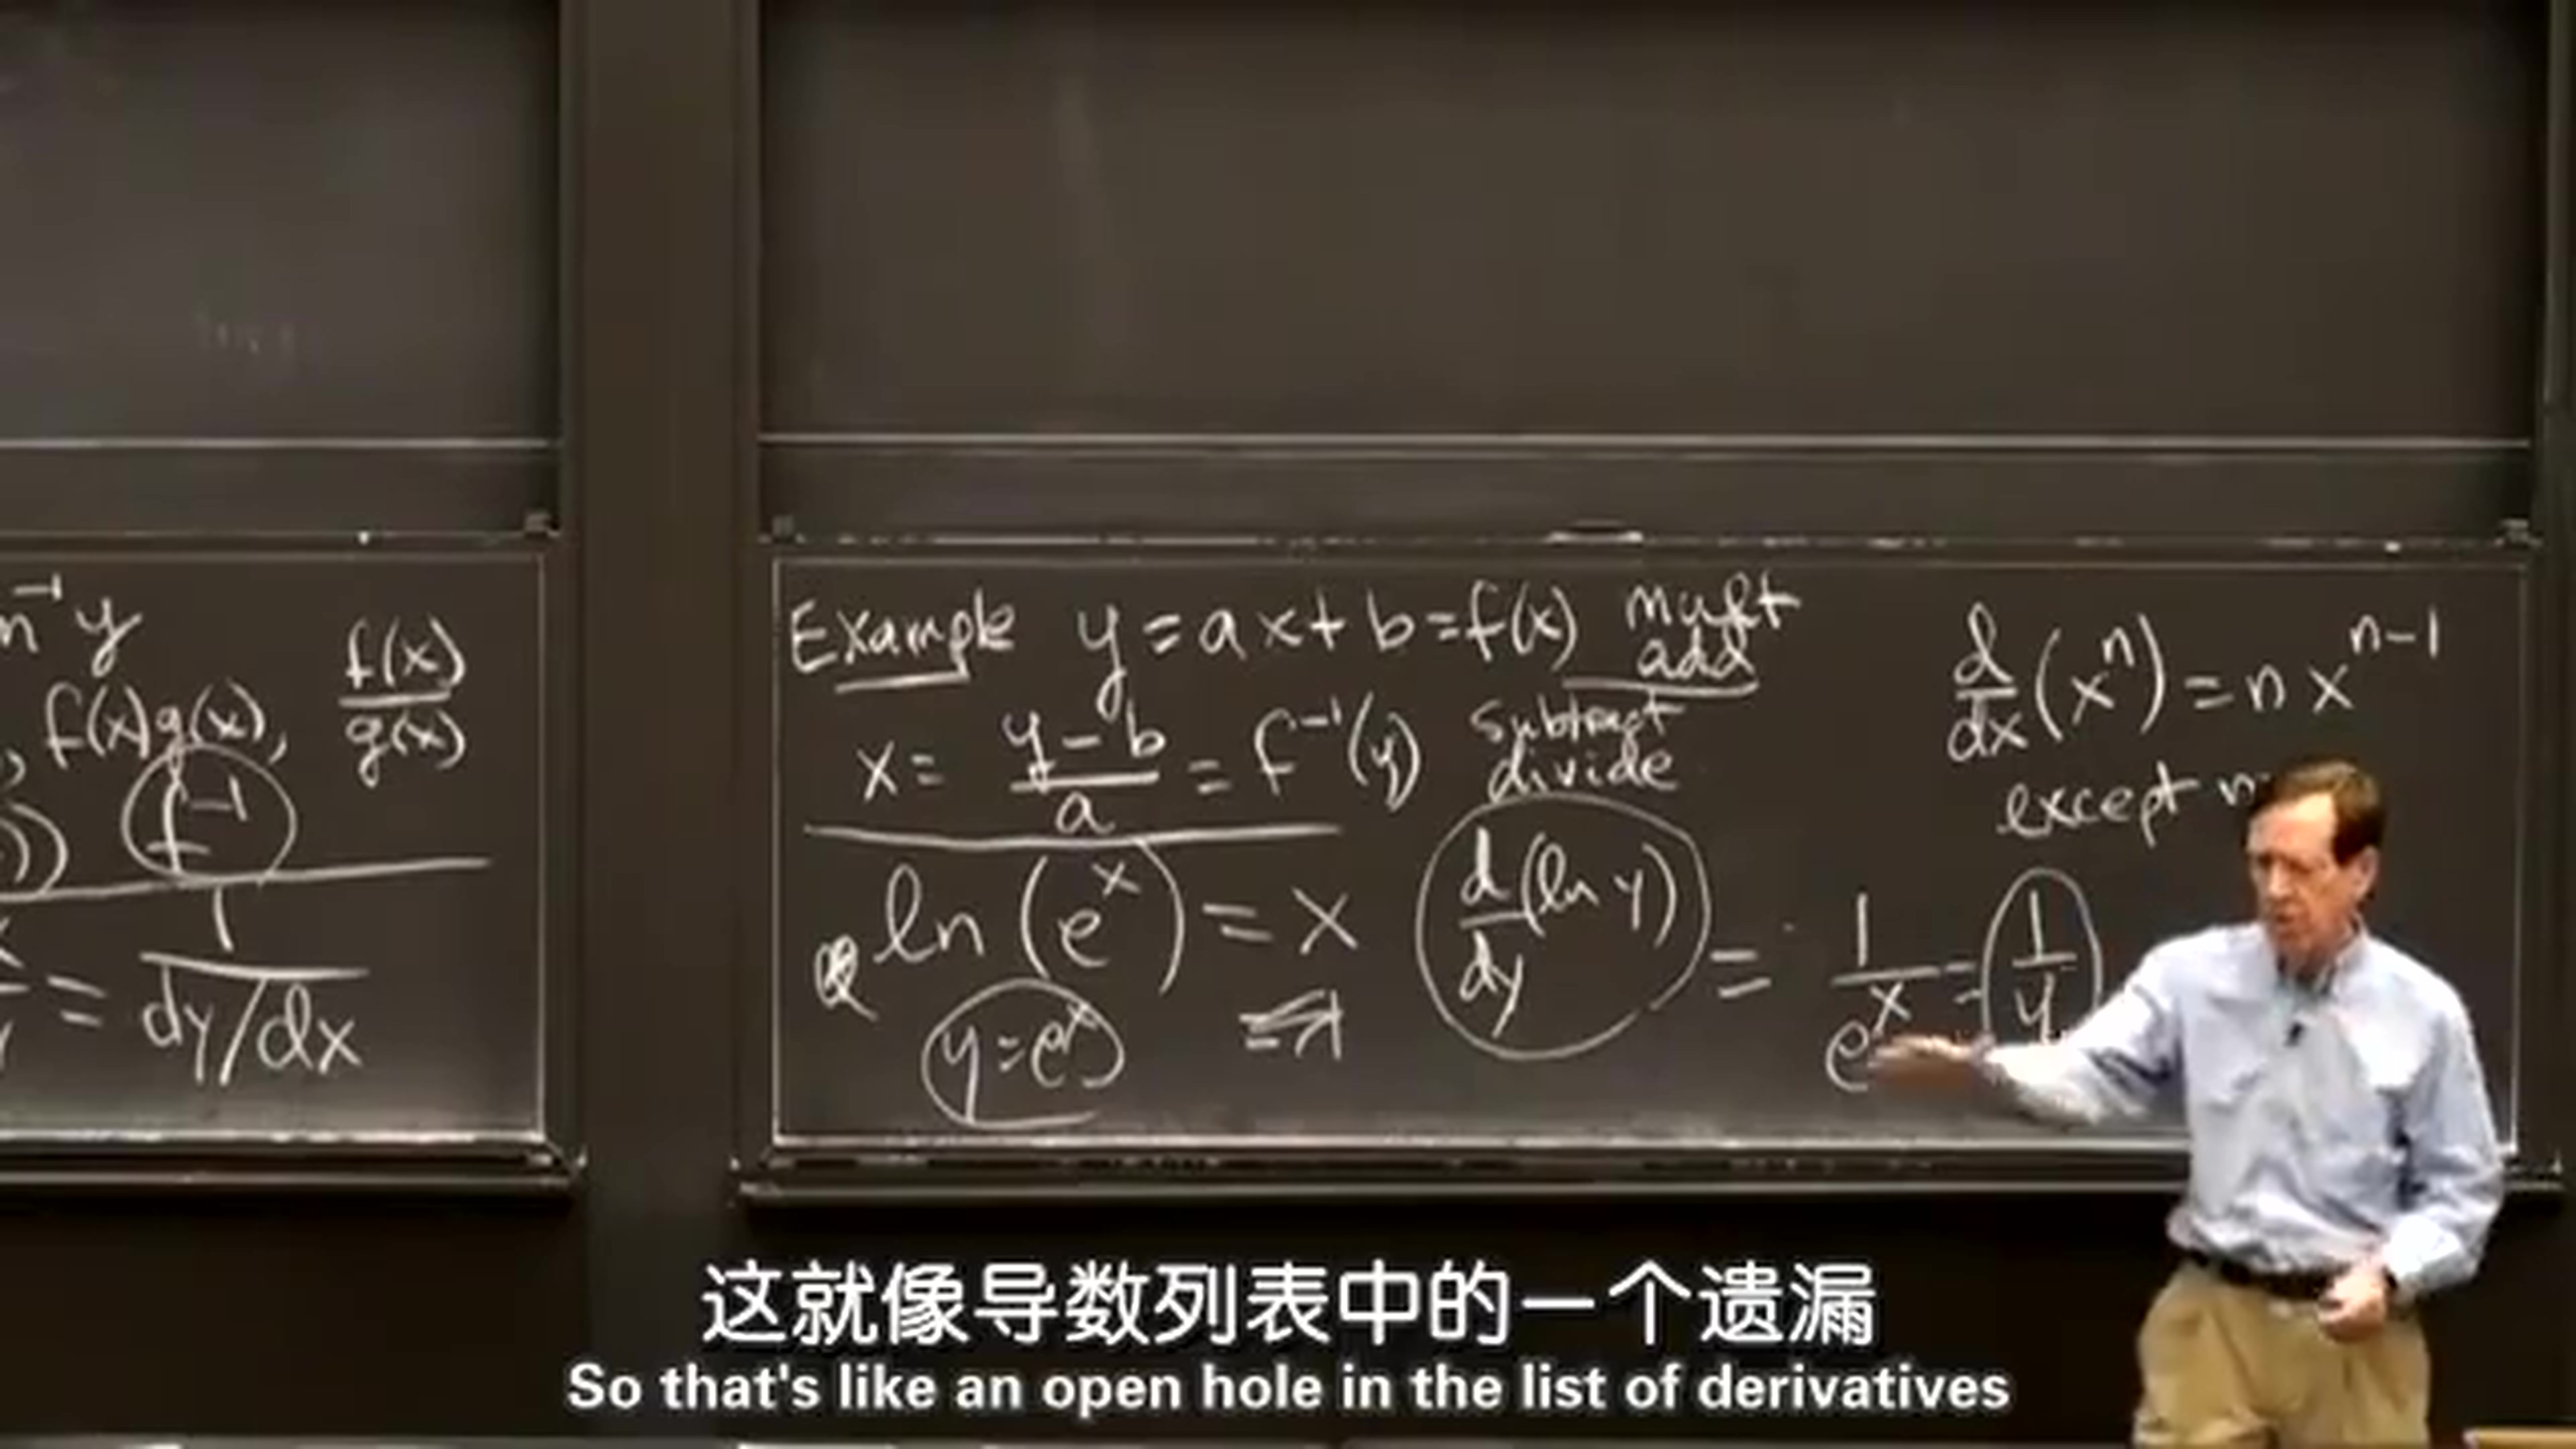 n⁻¹ y
f(x)
, f(x)g(x), g(x)
) f⁻¹
= 1
dy/dx
Example y = ax + b = f(x) mult
add
x = y - b = f⁻¹(y) subtract
a divide
ln (eˣ) = x d (ln y) = 1 = 1
dy eˣ y
y = eˣ
d (xⁿ) = n xⁿ⁻¹
dx
except n
这就像导数列表中的一个遗漏
So that's like an open hole in the list of derivatives